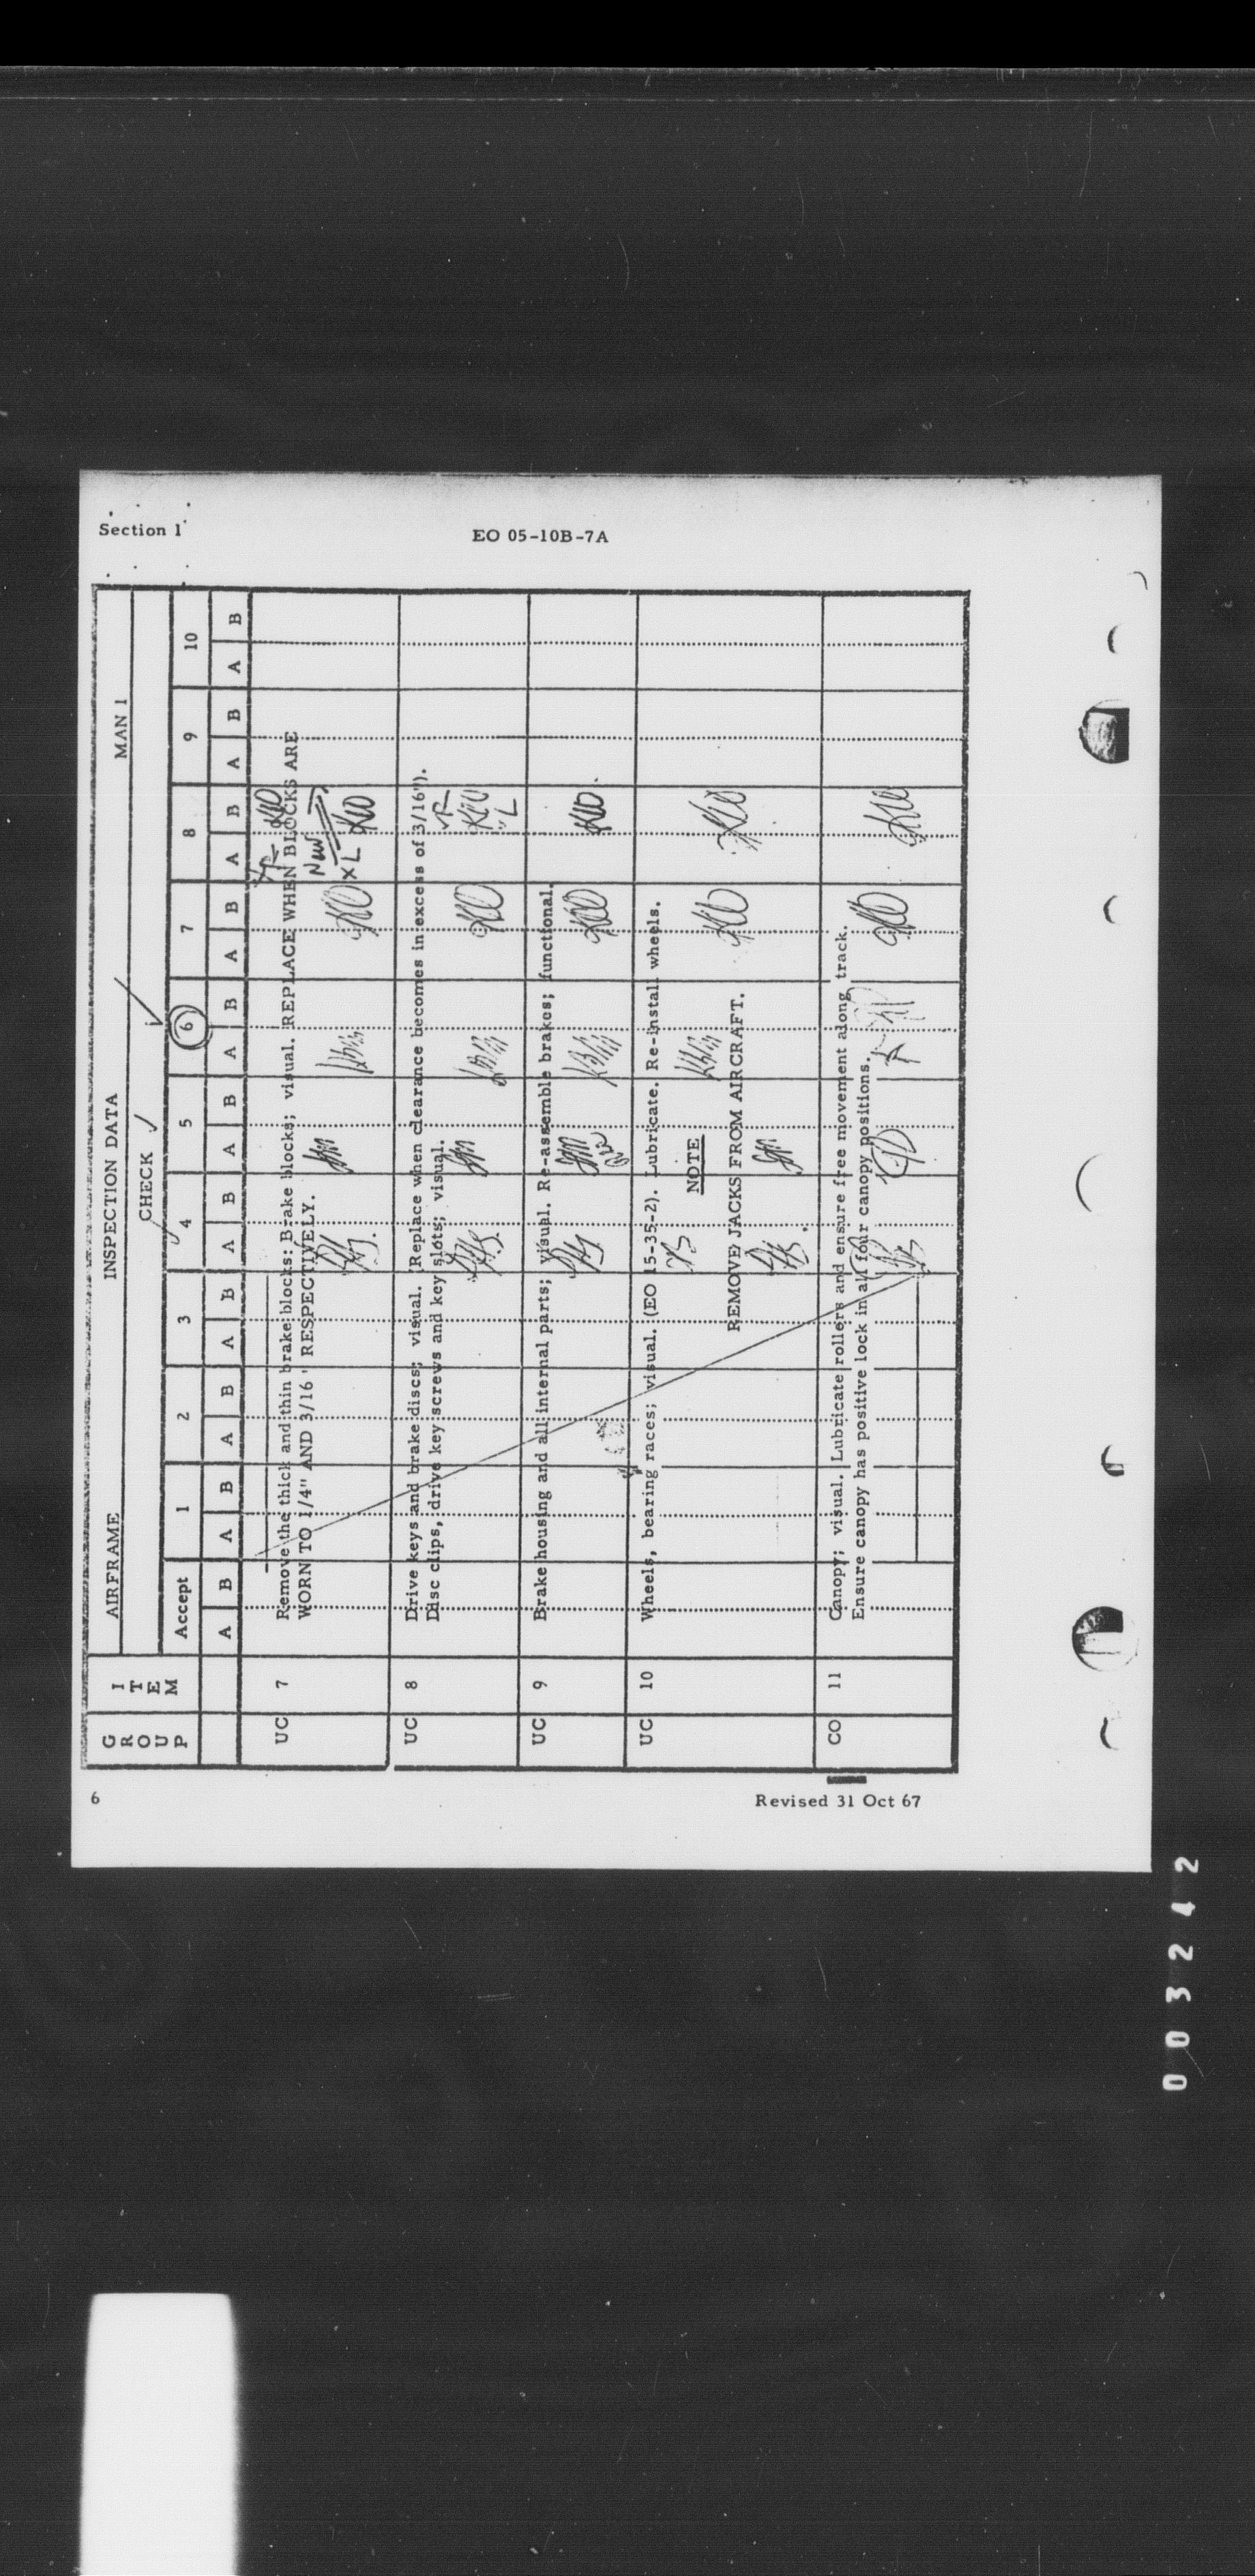 Section 1
EO 05-10B-7A
AIRFRAME INSPECTION DATA MAN 1
GROUP ITEM CHECK
Accept 1 2 3 4 5 6 7 8 9 10
A B A B A B A B A B A B A B A B A B A B A B
UC 7 Remove the thick and thin brake blocks: Brake blocks; visual. REPLACE WHEN BLOCKS ARE
WORN TO 1/4" AND 3/16" RESPECTIVELY.
New
XL
UC 8 Drive keys and brake discs; visual. (Replace when clearance becomes in excess of 3/16").
Disc clips, drive key screws and key slots; visual.
L
UC 9 Brake housing and all internal parts; visual. Re-assemble brakes; functional.
UC 10 Wheels, bearing races; visual. (EO 15-35-2). Lubricate. Re-install wheels.
NOTE
REMOVE JACKS FROM AIRCRAFT.
CO 11 Canopy; visual. Lubricate rollers and ensure free movement along track.
Ensure canopy has positive lock in all four canopy positions.
6
Revised 31 Oct 67
003242